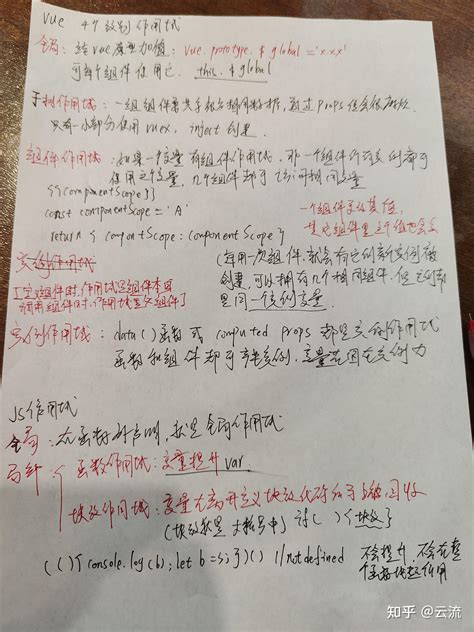 vue 4个级别作用域
全局：给vue原型加值：Vue.prototype.$global='xxx'
可每个组件使用它. this.$global
子树作用域：一组组件需共享很多相同数据，通过props但会很麻烦
只有一小部分使用vuex，inject创建.
组件作用域：如果一个变量有组件作用域，那一个组件所有实例都可
使用这个变量，几个组件却可访问相同变量
{{componentScope}}
const componentScope='A'
return { componentScope:componentScope }
一个组件更改其值，
其它组件里这个值也会变
实例作用域
(每用一次组件，就会有它的新实例被
创建，可以拥有几个相同组件，但它们都
是同一个实例变量.
[定义组件时，作用域是组件本身
调用组件时，作用域是父组件]
实例作用域：data()函数或computed props都是实例作用域
函数和组件都可产生实例，变量范围在实例内
JS作用域
全局：在函数外声明，就是全局作用域
局部：{函数作用域：变量提升 var.
块级作用域：变量在离开定义块级代码后马上被回收
(块级就是大括号中) if( ){块级}
(()=>{console.log(b); let b=5;})() //not defined 不会提升，不会在整
个函数块起作用
知乎 @云流